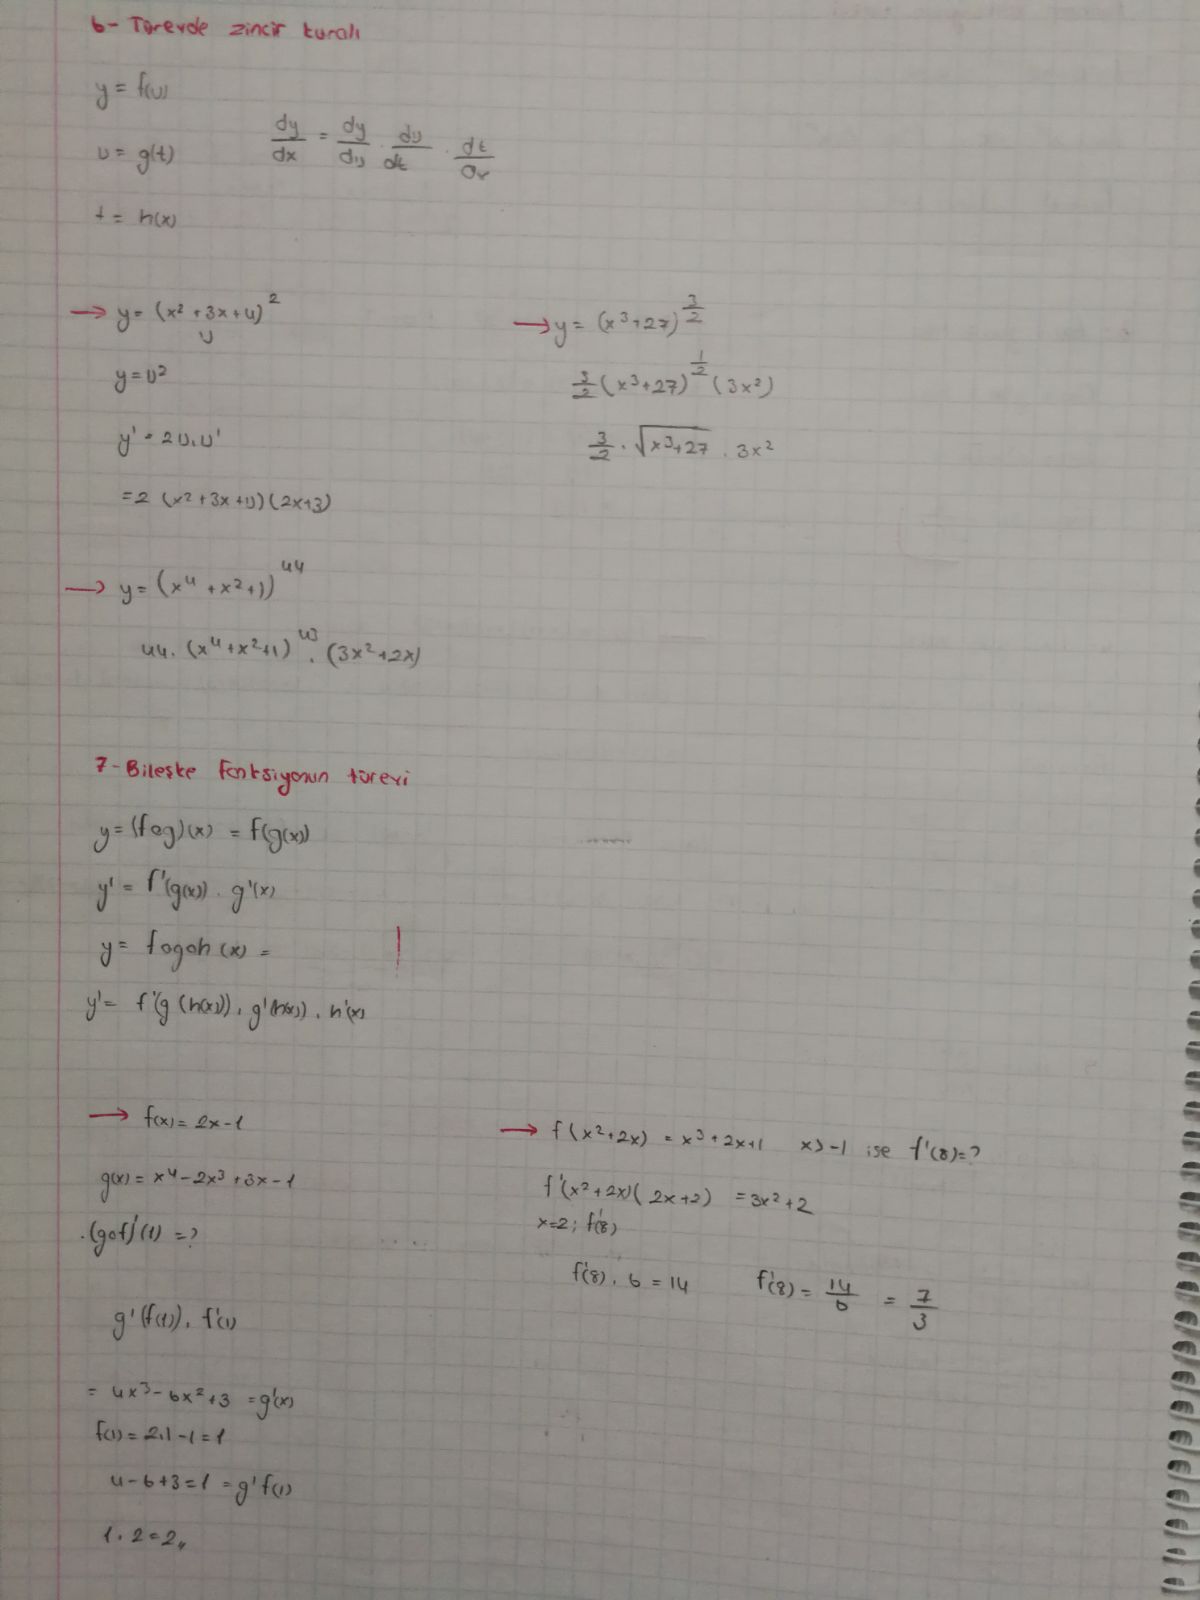 6- Türevde zincir kuralı
y = f(u)
u = g(t)
dy/dx = dy/du . du/dt . dt/dx
t = h(x)
→ y = (x² + 3x + 4)²
u
y = u²
y' = 2u.u'
= 2 (x² + 3x + 4) (2x+3)
→ y = (x³+27)^(3/2)
3/2 (x³+27)^(1/2) (3x²)
3/2 . √(x³+27) . 3x²
→ y = (x⁴ + x² + 1)⁴⁴
44. (x⁴ + x² + 1)⁴³ . (3x² + 2x)
7- Bileşke fonksiyonun türevi
y = (fog)(x) = f(g(x))
y' = f'(g(x)) . g'(x)
y = fogoh (x) =
y' = f'(g (h(x)) . g'(h(x)) . h'(x)
→ f(x) = 2x-1
g(x) = x⁴ - 2x³ + 3x - 1
(gof)'(1) = ?
g'(f(1)) . f'(1)
= 4x³ - 6x² + 3 = g'(x)
f(1) = 2.1 - 1 = 1
4 - 6 + 3 = 1 = g' f(1)
1 . 2 = 2,,
→ f(x²+2x) = x³ + 2x+1 x>-1 ise f'(8)=?
f'(x² + 2x)(2x+2) = 3x² + 2
x=2; f'(8)
f'(8) . 6 = 14 f'(8) = 14/6 = 7/3